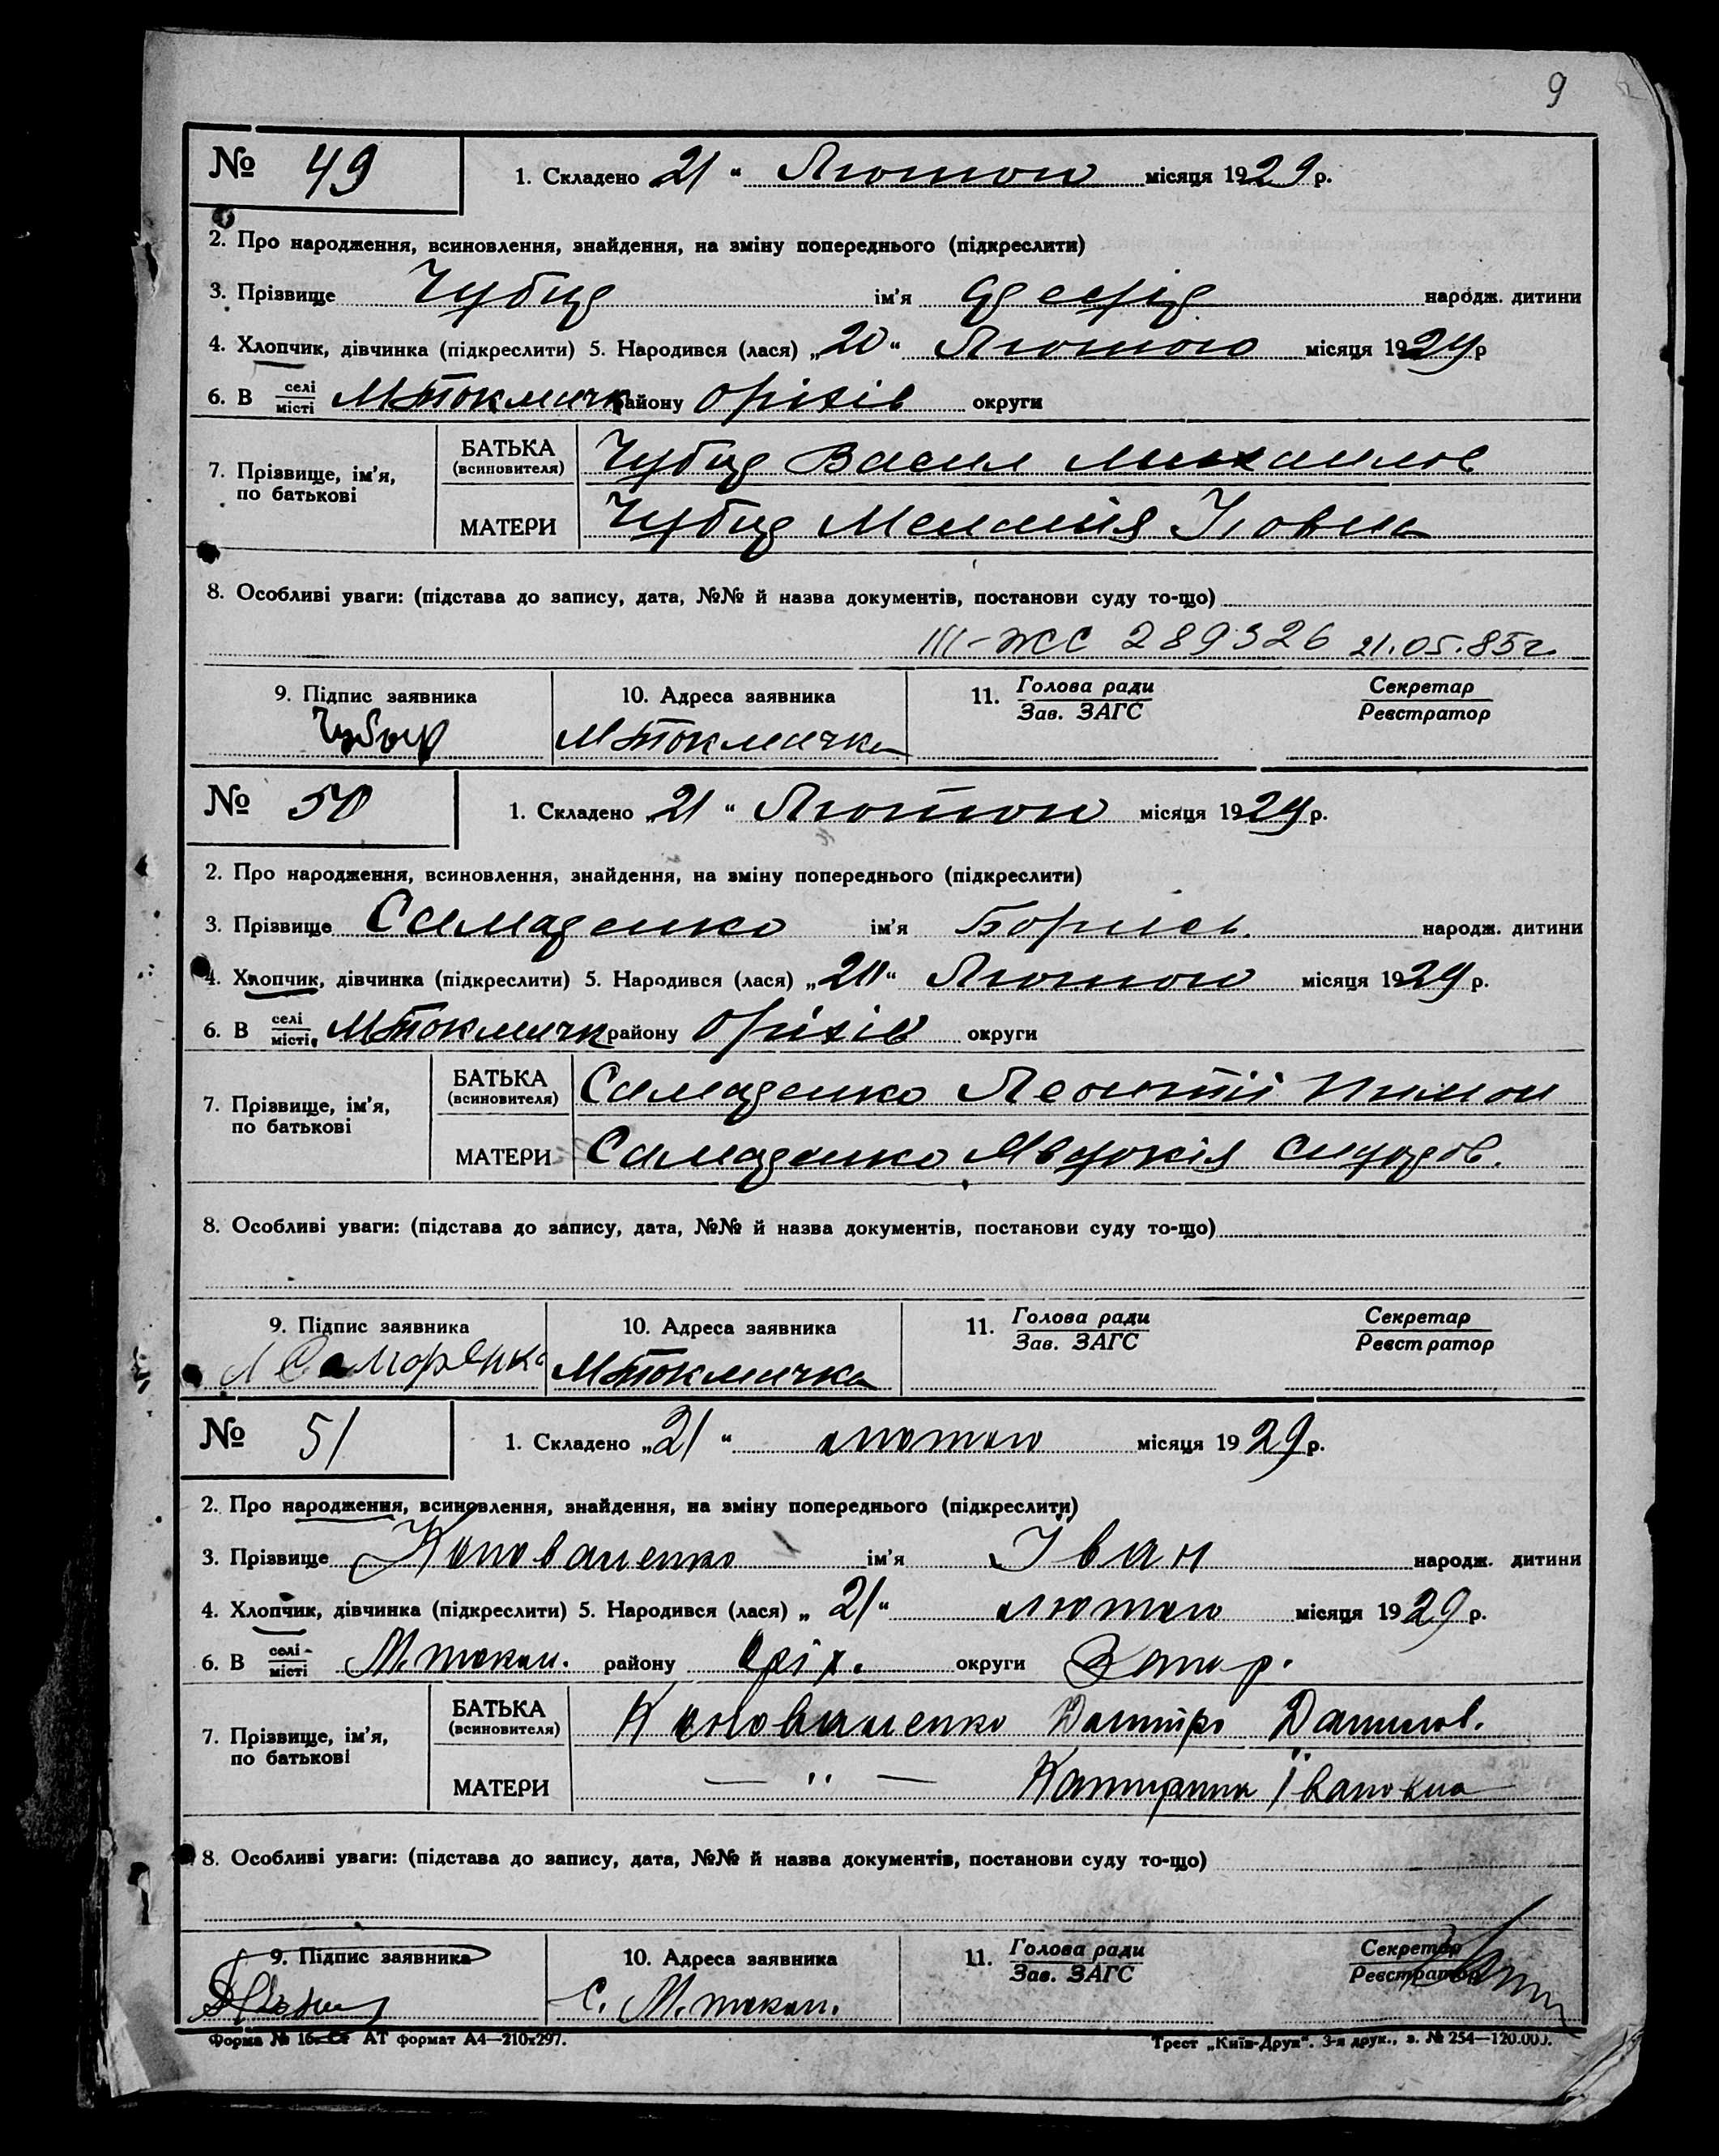 9
№ 49
1. Складено „21“ Лютого місяця 1929 р.
2. Про народження, всиновлення, знайдення, на зміну попереднього (підкреслити)
3. Прізвище ім'я народж. дитини
4. Хлопчик, дівчинка (підкреслити) 5. Народився (лася) „20“ Лютого місяця 1929 р
6. В селі/місті М Токмачк району Оріхів округи
7. Прізвище, ім'я, по батькові
БАТЬКА (всиновителя) Василь Михаилов
МАТЕРИ Меланія
8. Особливі уваги: (підстава до запису, дата, №№ й назва документів, постанови суду то-що)
III-ЖС 289326 21.05.85г.
9. Підпис заявника 10. Адреса заявника 11. Голова ради/Зав. ЗАГС Секретар/Реєстратор
М Токмачка
№ 50
1. Складено „21“ Лютого місяця 1929 р.
2. Про народження, всиновлення, знайдення, на зміну попереднього (підкреслити)
3. Прізвище ім'я Борись народж. дитини
4. Хлопчик, дівчинка (підкреслити) 5. Народився (лася) Лютого місяця 1929 р.
6. В селі/місті М Токмачк району Оріхів округи
7. Прізвище, ім'я, по батькові
БАТЬКА (всиновителя) Леонтій
МАТЕРИ Явдокія
8. Особливі уваги: (підстава до запису, дата, №№ й назва документів, постанови суду то-що)
9. Підпис заявника 10. Адреса заявника 11. Голова ради/Зав. ЗАГС Секретар/Реєстратор
М Токмачка
№ 51
1. Складено „21“ лютого місяця 1929 р.
2. Про народження, всиновлення, знайдення, на зміну попереднього (підкреслити)
3. Прізвище Коноваленко ім'я Іван народж. дитини
4. Хлопчик, дівчинка (підкреслити) 5. Народився (лася) „21“ лютого місяця 1929 р.
6. В селі/місті М. токм. району Оріх. округи Запор.
7. Прізвище, ім'я, по батькові
БАТЬКА (всиновителя) Коноваленко Дмитро Данилов.
МАТЕРИ — " — Катирина Івановна
8. Особливі уваги: (підстава до запису, дата, №№ й назва документів, постанови суду то-що)
9. Підпис заявника 10. Адреса заявника 11. Голова ради/Зав. ЗАГС Секретар/Реєстратор
С. М. токм.
Форма № 16. АТ формат А4—210х297. Трест „Київ-Друк“. 3-я друк., з. № 254—120.000.